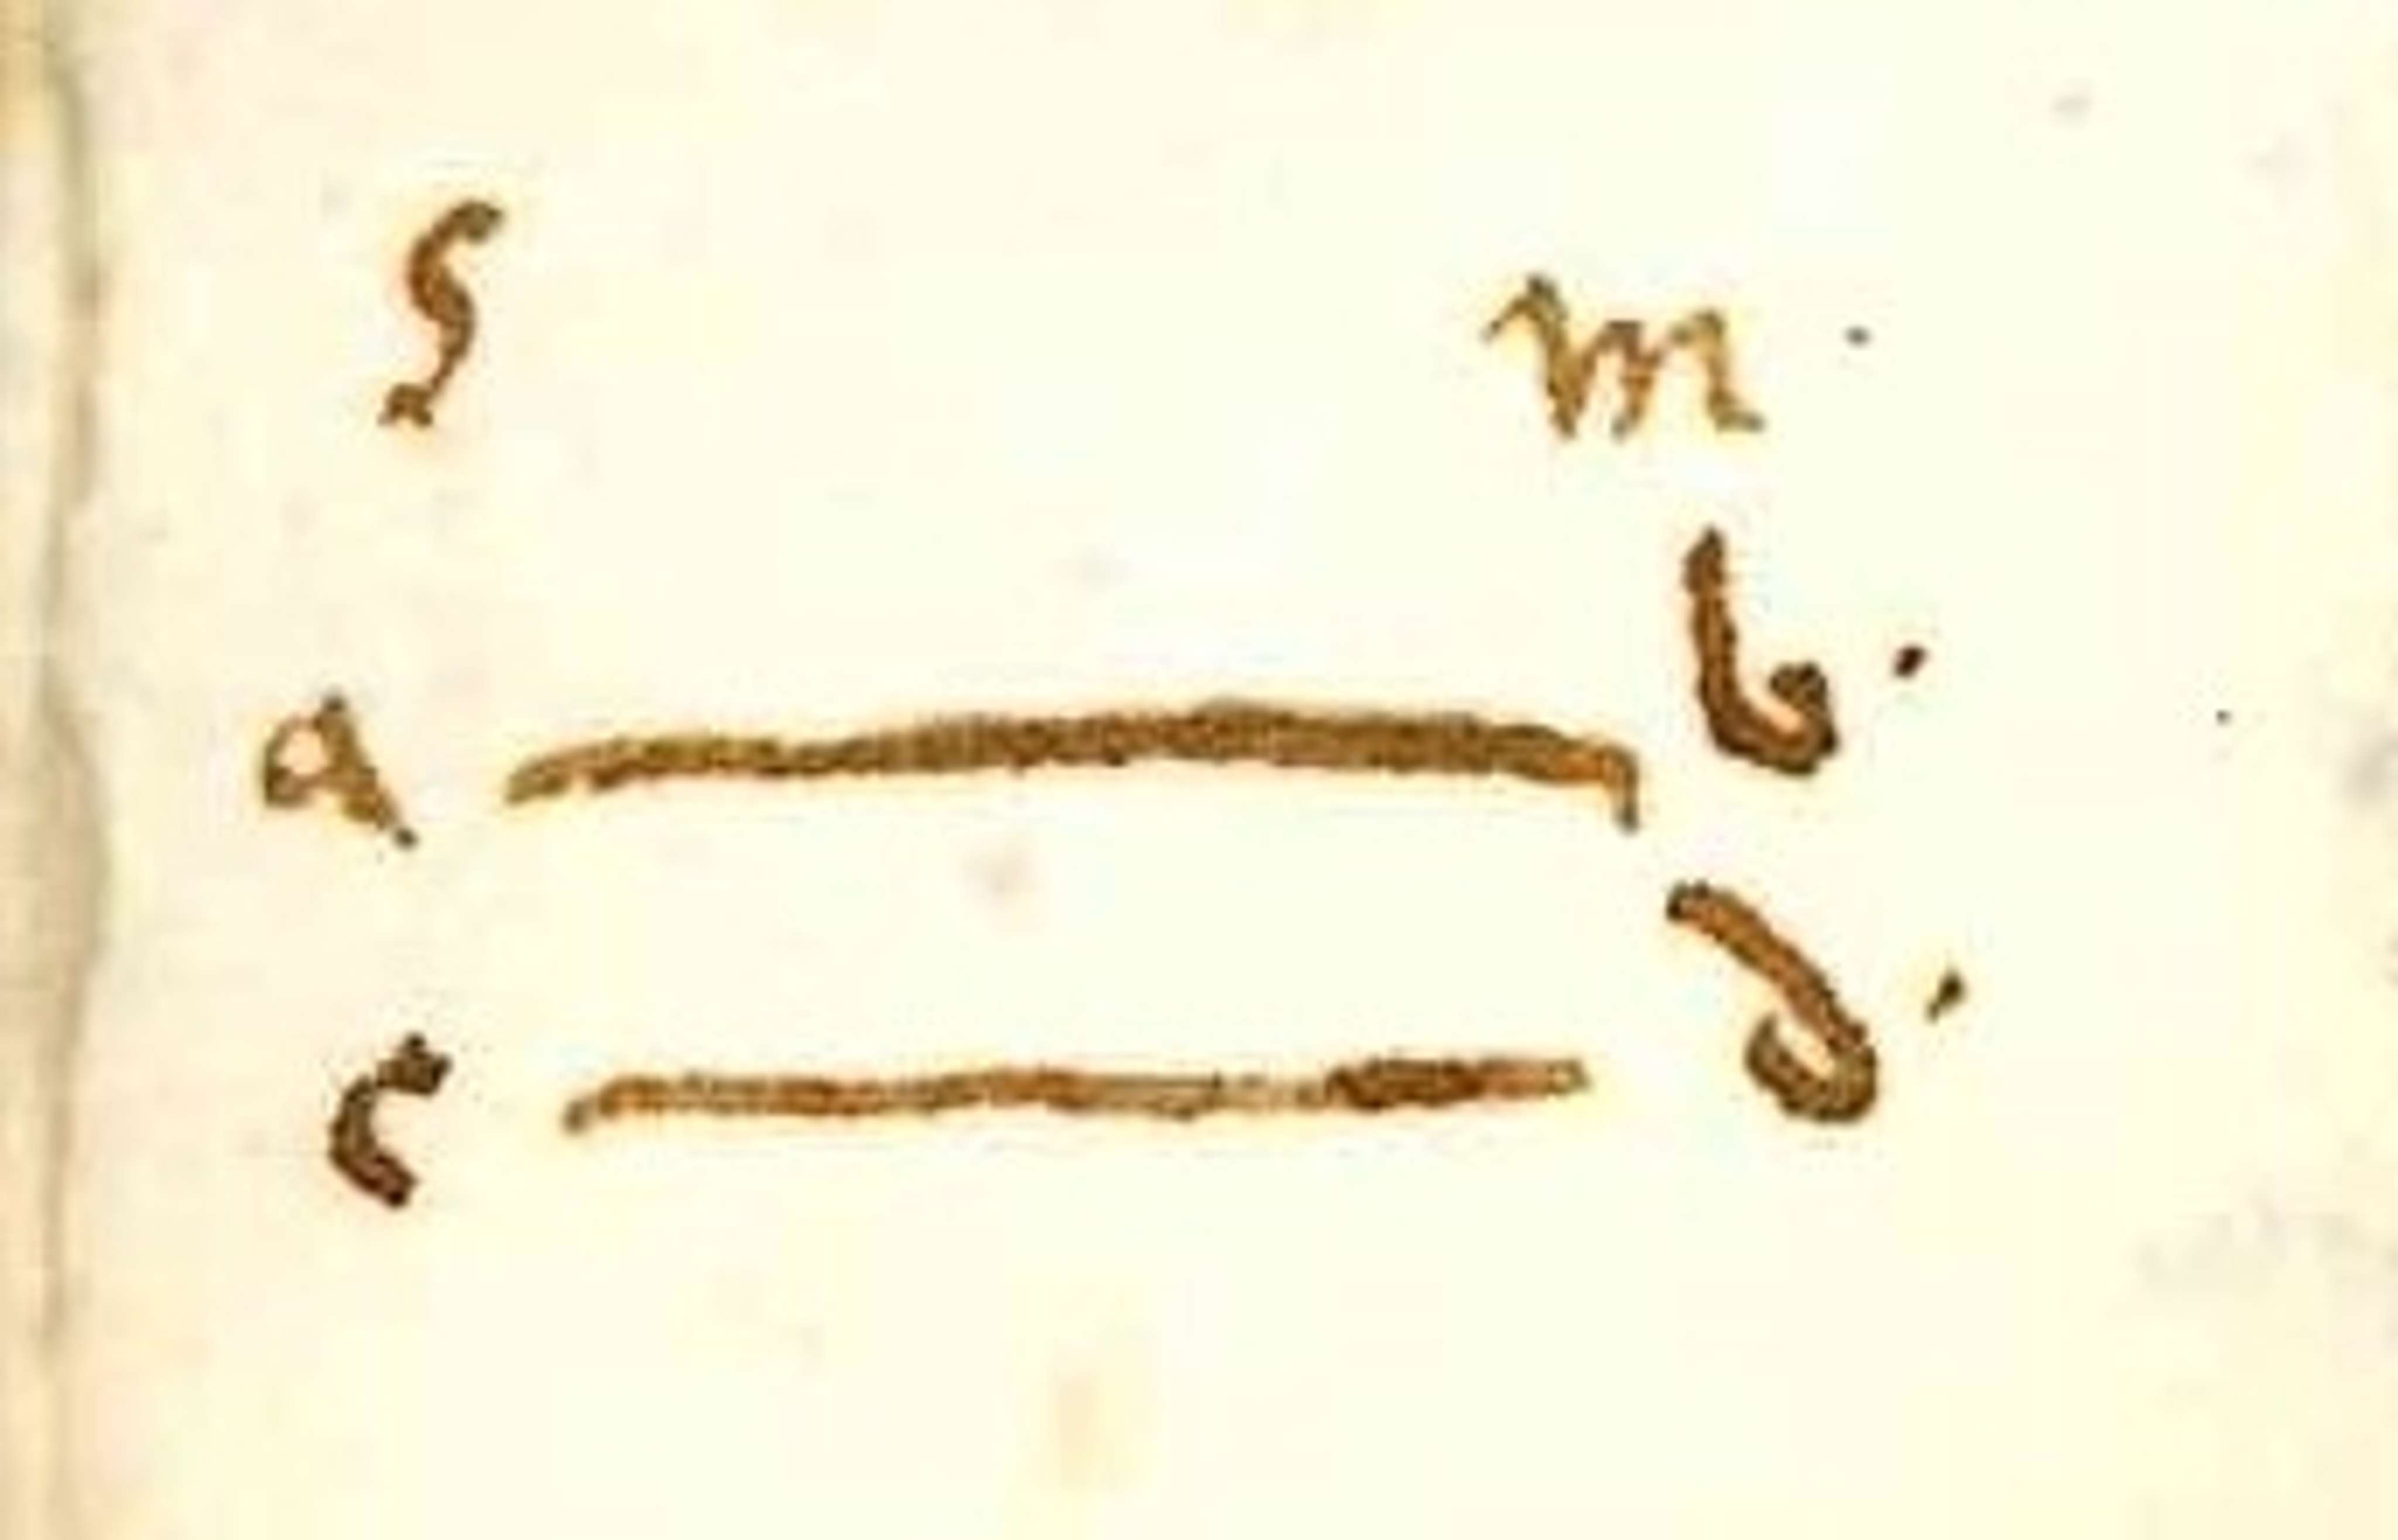 S m .
a — b .
c — d .